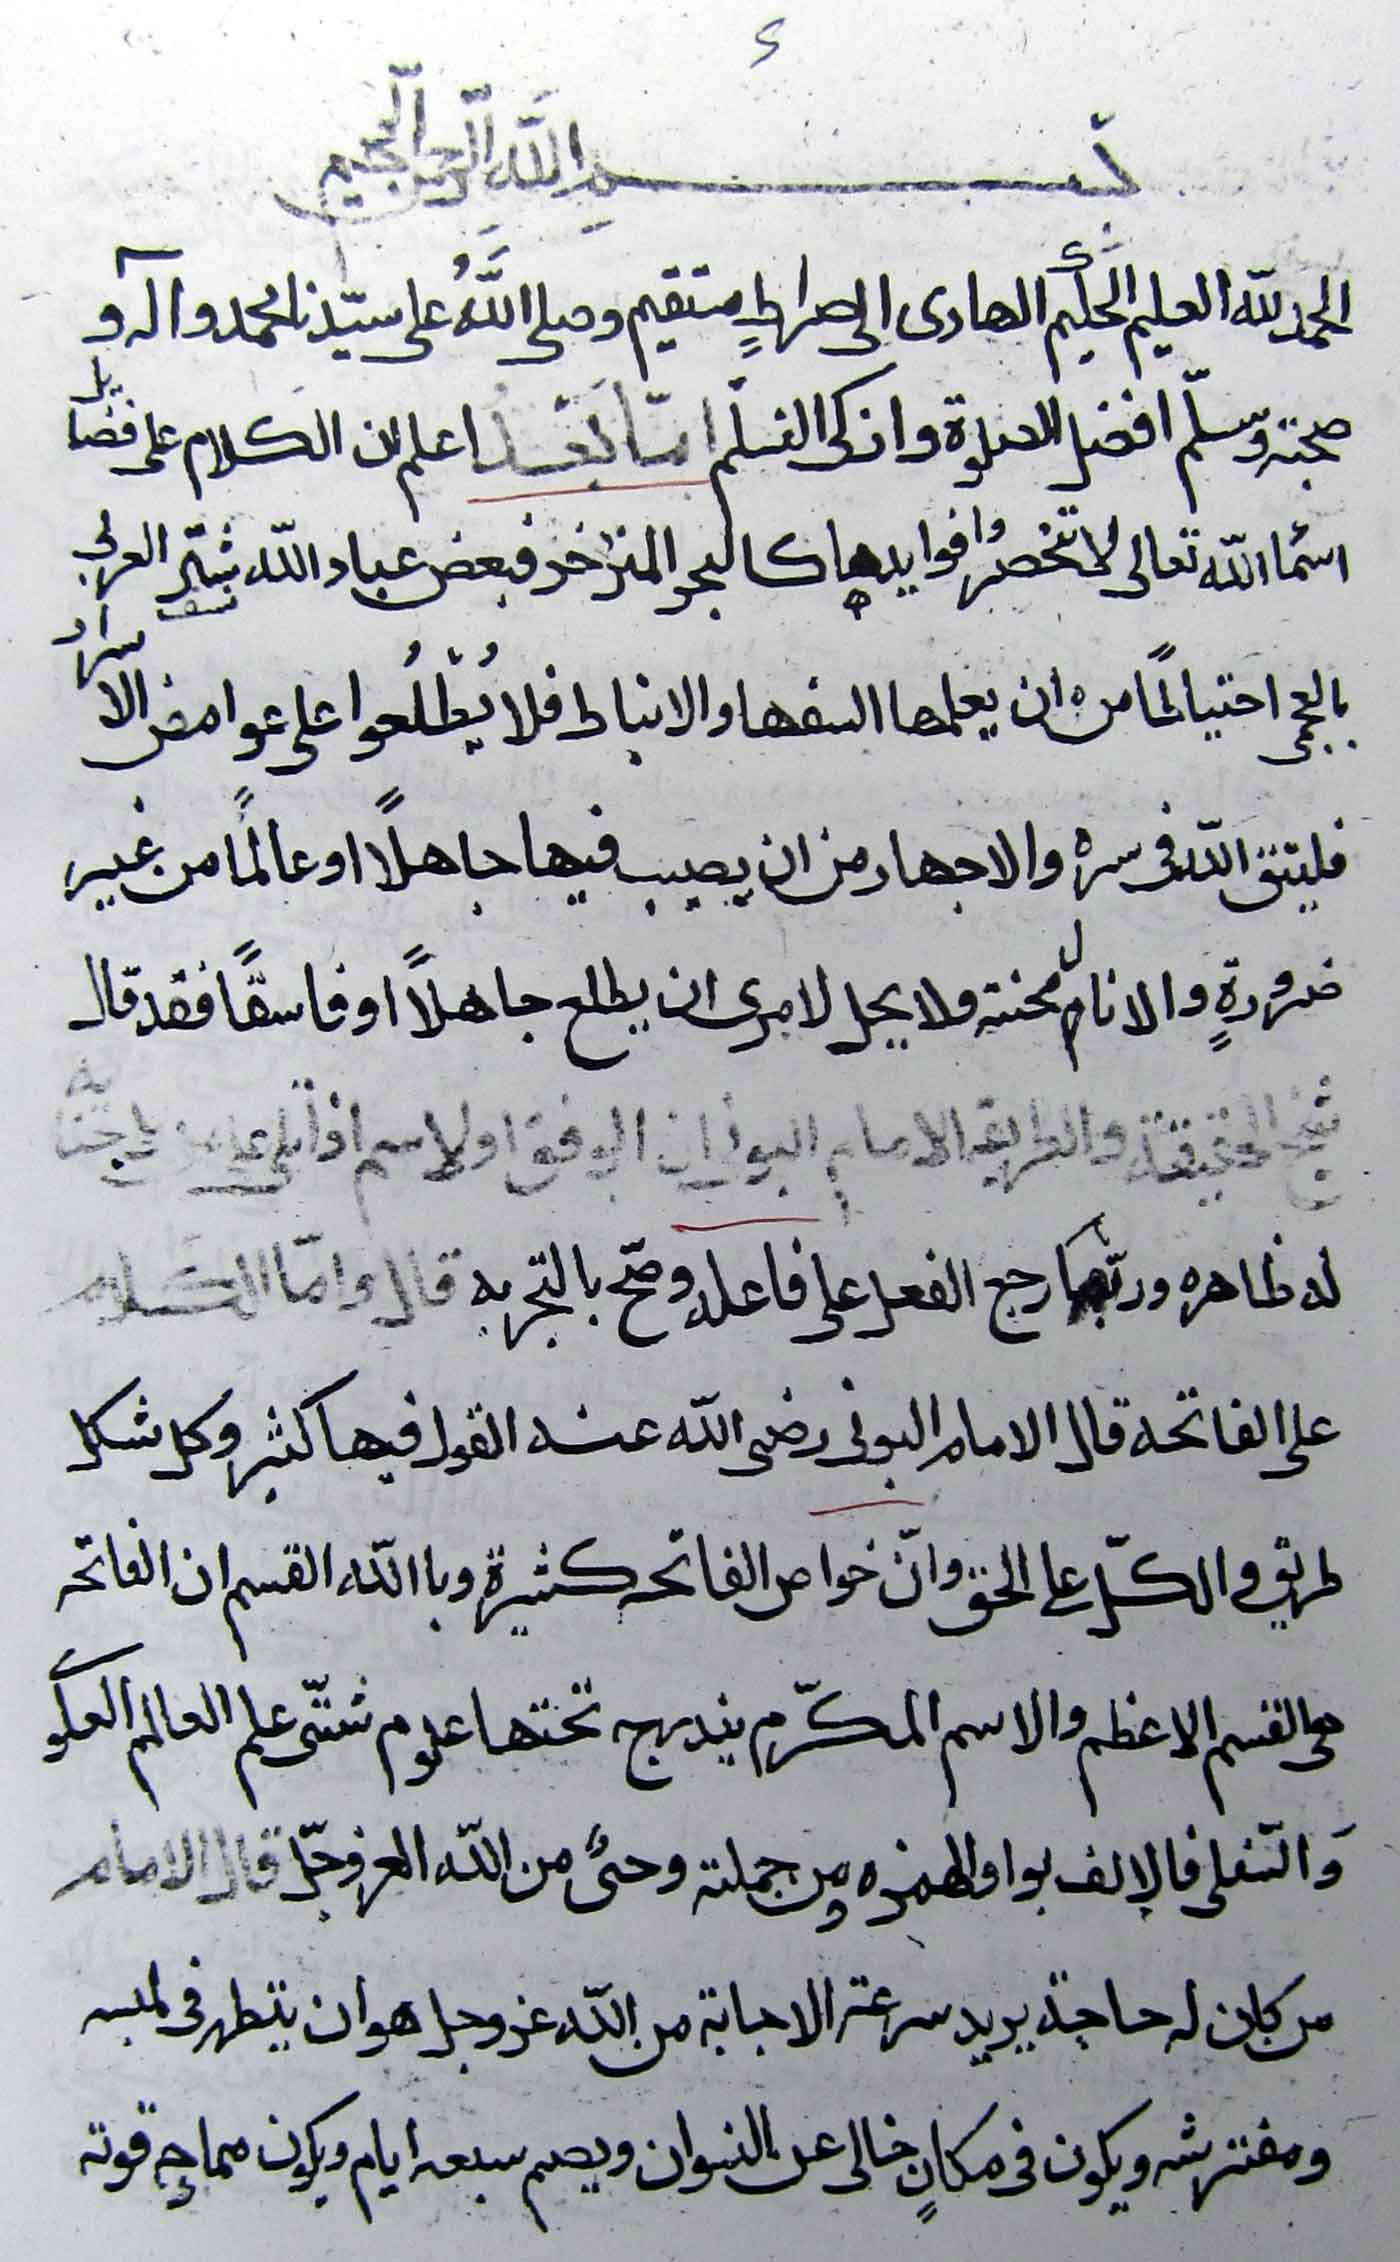 ٤
بسم الله الرحمن الرحيم
الحمد لله العليم الحكيم الهادى الى صراطٍ مستقيم وصلى اللهُ على سيّدنا محمد وآله و
صحبته وسلّم افضل الصلوة وازكى التسلم امّا بَعْد اعلم ان الكلام على فضايل
اسما الله تعالى لا تنحصر فوايدها كالبحر الزاخر فبعض عباد الله ستّر العربى
بالعجمى احتياطًا من ان يعلمها السفها والانباط فلا يُطْلُعوا على غوامض الاسرار
فليتق الله فى سره والاجهار من ان يصيب فيها جاهلًا او عالمًا من غير
ضرورةٍ والانام محنته ولا يحل لامرى ان يطلع جاهلاً او فاسقًا فقد قال
شيخ الحقيقة والطريقه الامام البونى ان الوفق او الاسم اذا
له ظاهره وربّما رجع الفعل على فاعله وصحّ بالتجربه قال وامّا الكلام
على الفاتحه قال الامام البونى رضى الله عنه القول فيها كثير وكل شكل
طريق والكلّ على الحق وانّ خواص الفاتحه كثيرة وبا الله القسم ان الفاتحه
هى القسم الاعظم والاسم المكرّم يندرج تحتها علوم شتّى علم العالم العلو
وَالسّفلى فالالف بوا والهمزه ومن جملته وحىٌ من الله العزوجلّ قال الامام
من كان له حاجة يريد سرعة الاجابة من الله عز وجل هو ان يتطهر فى ملبسه
ومفترشه ويكون فى مكانٍ خالى عن النسوان ويصم سبعه ايام ويكون قوته